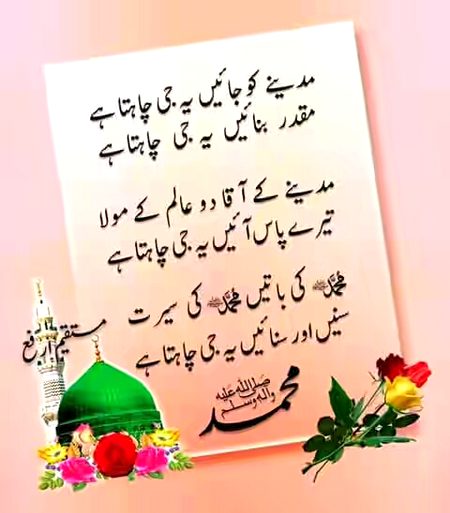 مدینے کو جائیں یہ جی چاہتا ہے
مقدر بنائیں یہ جی چاہتا ہے
مدینے کے آقا دو عالم کے مولا
تیرے پاس آئیں یہ جی چاہتا ہے
محمدﷺ کی باتیں محمدﷺ کی سیرت
سنیں اور سنائیں یہ جی چاہتا ہے
مستقیم ارفع
محمد صلی اللہ علیہ وآلہ وسلم